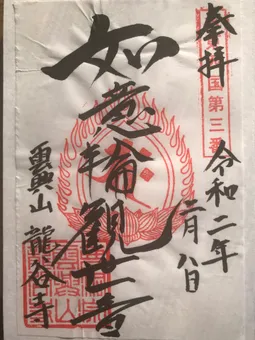 奉拝
国第三番
令和二年
二月八日
如意輪観世音
龍谷寺